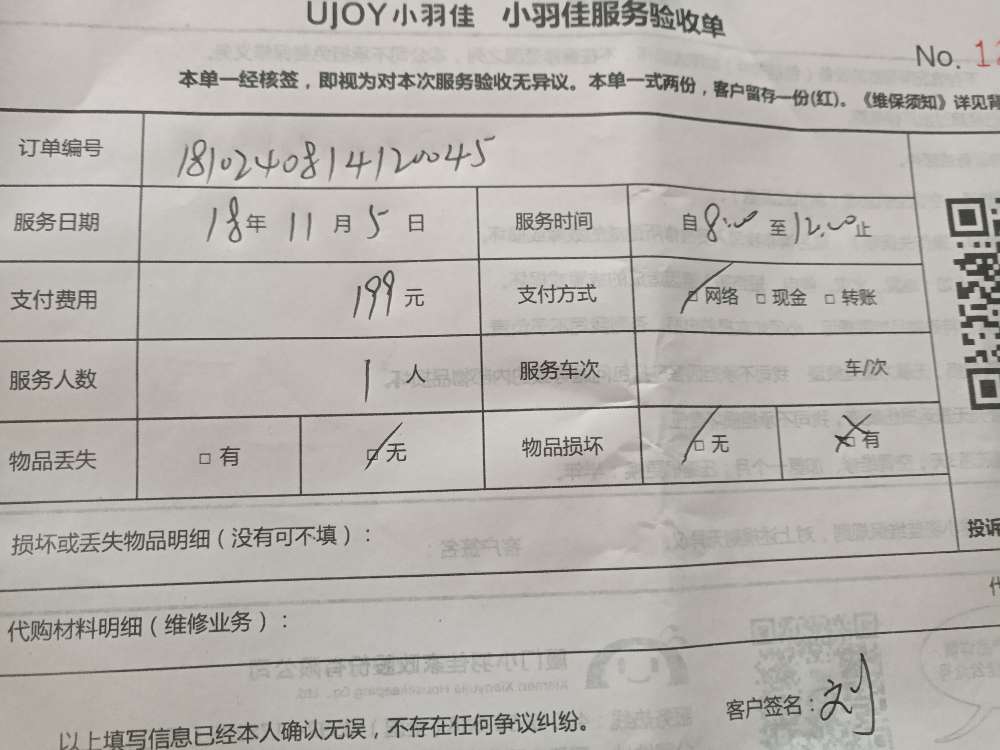 UJOY小羽佳 小羽佳服务验收单
No. 12
本单一经核签，即视为对本次服务验收无异议。本单一式两份，客户留存一份(红)。《维保须知》详见背
订单编号 1810240814120045
服务日期 18年 11月 5日 服务时间 自8:00至12:00止
支付费用 199元 支付方式 □网络 □现金 □转账
服务人数 1人 服务车次 车/次
物品丢失 □有 □无 物品损坏 □无 □有
损坏或丢失物品明细（没有可不填）：
投诉
代购材料明细（维修业务）：
以上填写信息已经本人确认无误，不存在任何争议纠纷。
客户签名：刘